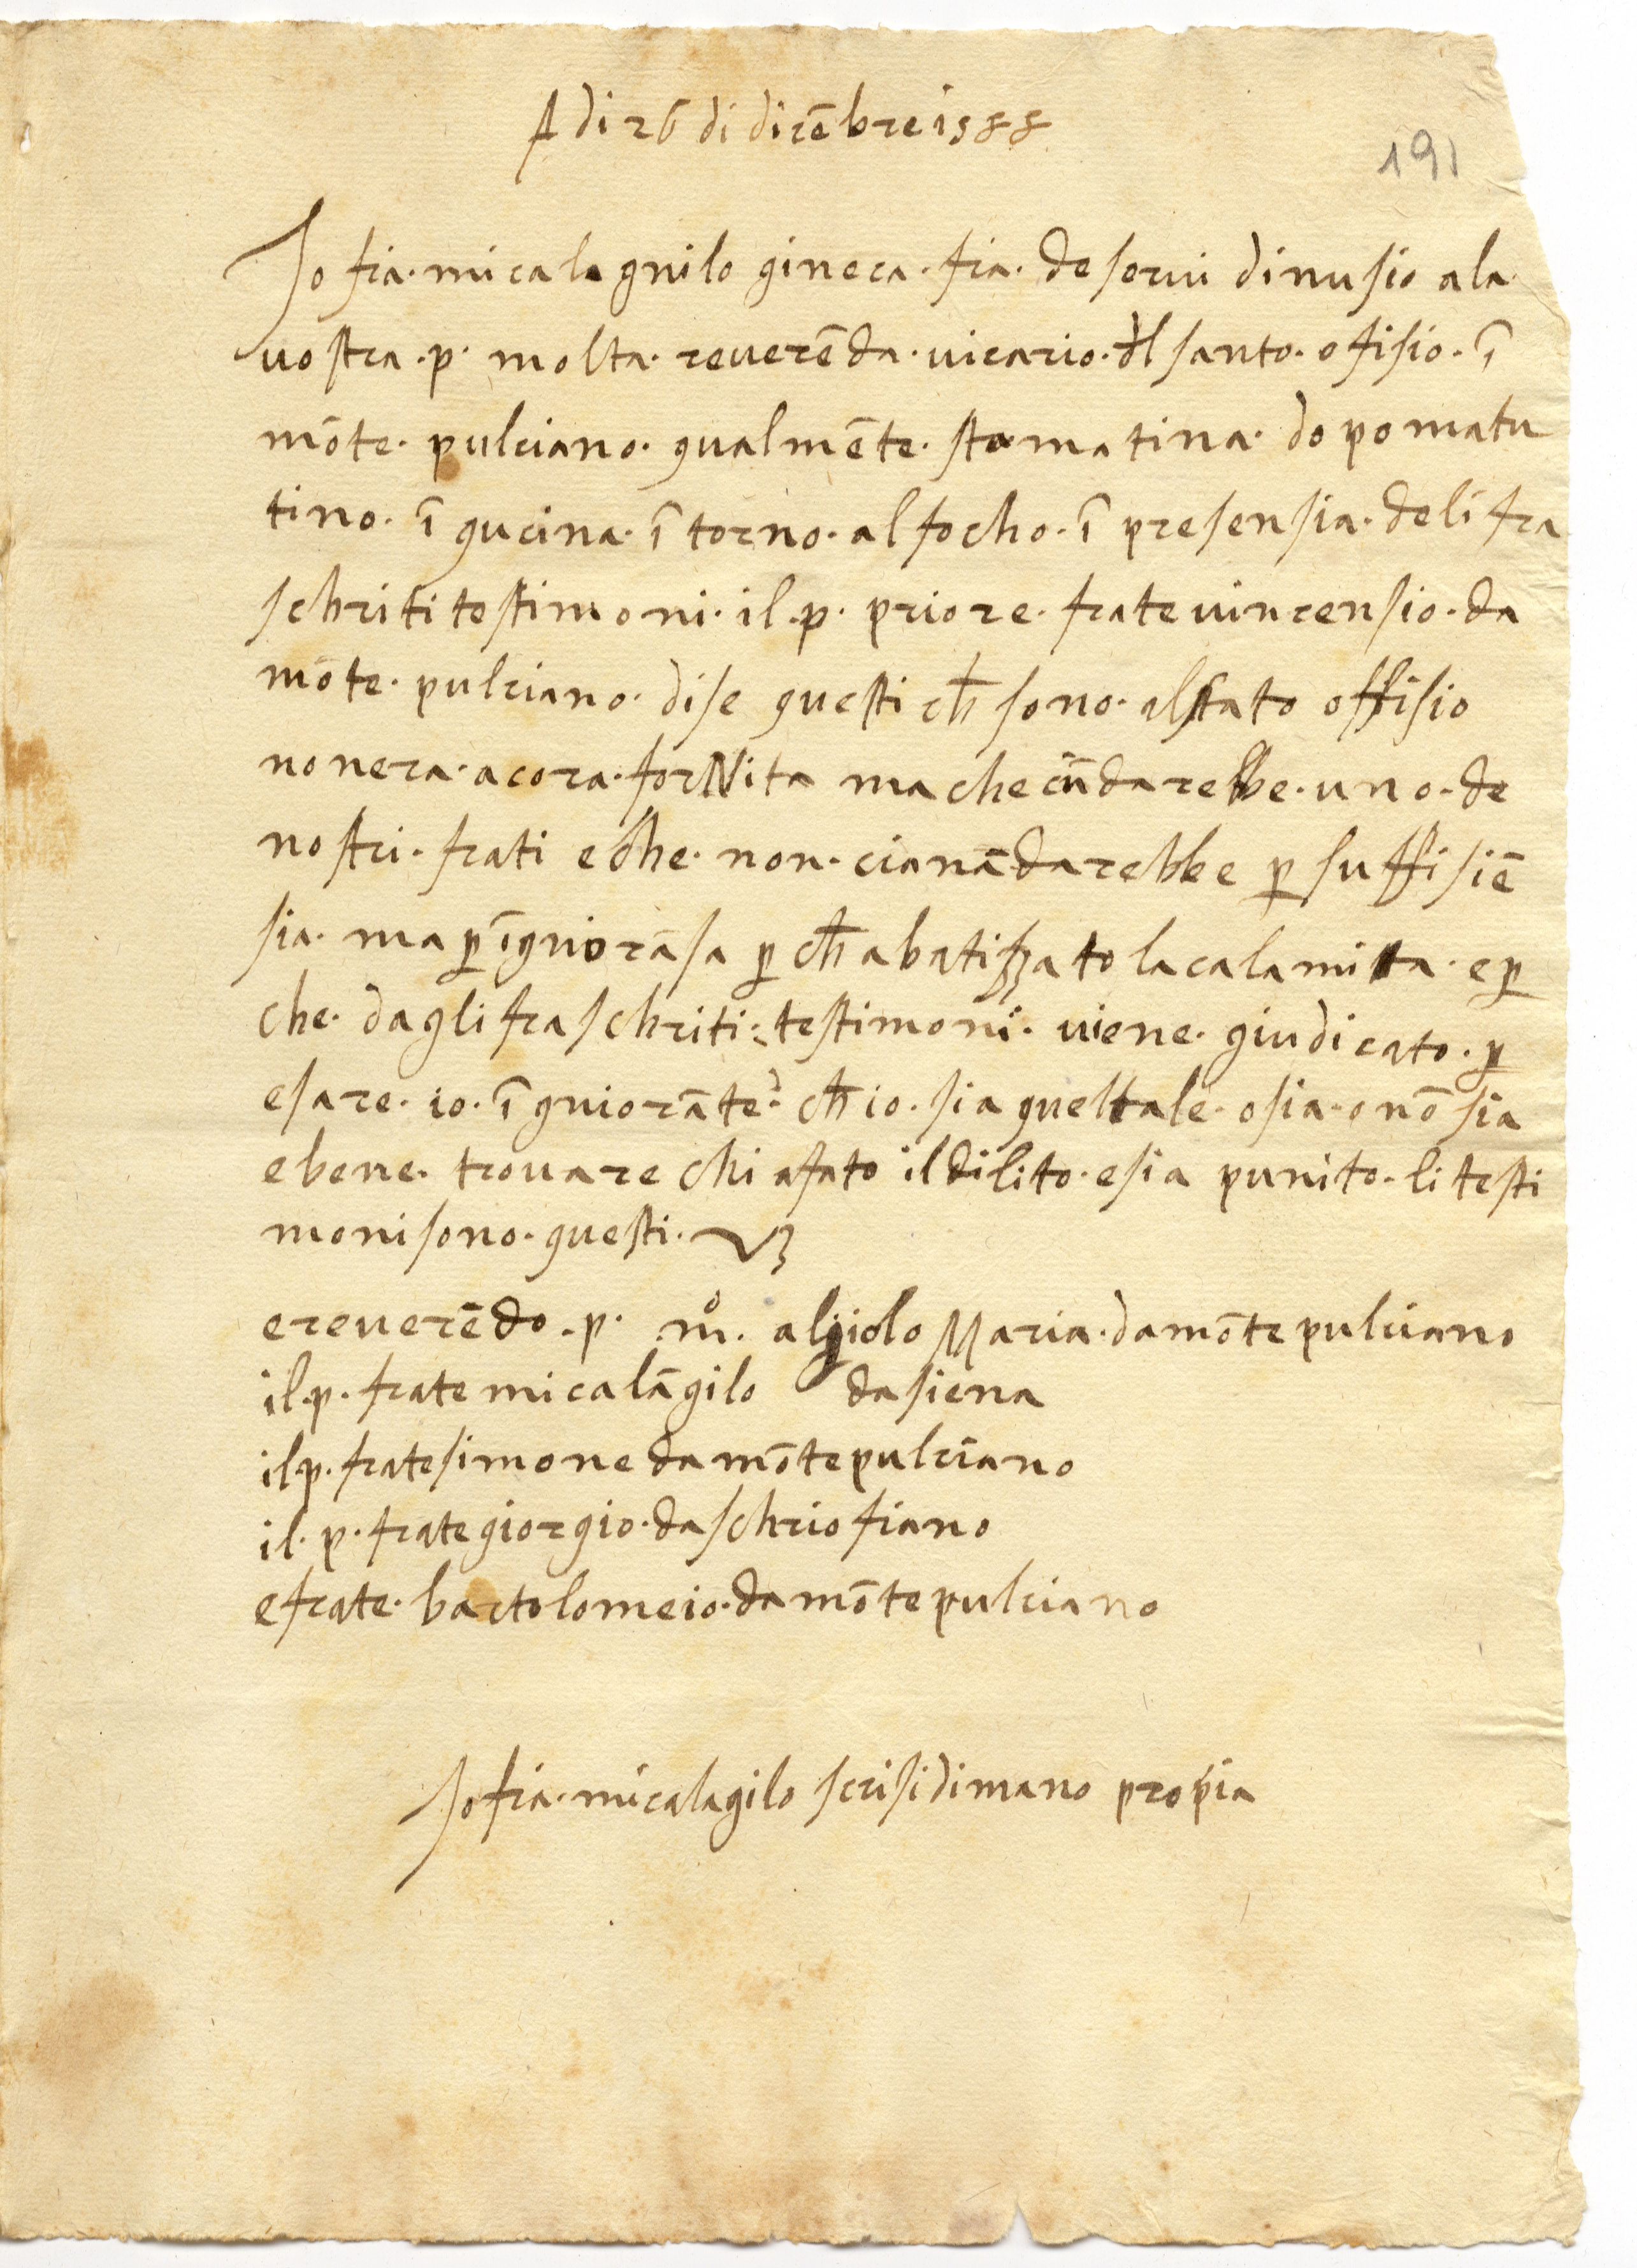 Adi 26 di dicēbre 1588
191
Io fra. micalagnilo gineca. fra. de servi dinusio ala
vostra. p. molta. reverēda. vicario. dl santo. ofisio. ī
mōte. pulciano. qualmēte. sta matina. dopo matu
tino. ī qucina. ī torno. al focho. ī presensia. deli fra
schriti testimoni. il. p. priore. frate vincensio. da
mōte. pulciano. dise questi ch̄ sono. al sato offisio
nonera. acora. forNita ma che cīādarebbe. uno. de
nostri. frati e che. non. cianādarebbe p suffisiē
sia. ma p īgniorāsa p ch̄ abatizzato la calamita. e p
che. dagli fraschriti. testimoni. viene. giudicato. p
esare. io. īgniorāte. ch̄ io. sia quel tale. o sia. o nō sia
e bene. trovare chi a fato il dilito. e sia punito. li testi
moni sono. questi.
e reverēdo. p. mo. Maria. da mōte pulciano
il p. frate micalāgilo da siena
il p. frate simone da mōte pulciano
il. p. frate giorgio. da schriofiano
e frate. bartolomeio. da mōte pulciano
Io fra. micalagilo scrisi di mano propia